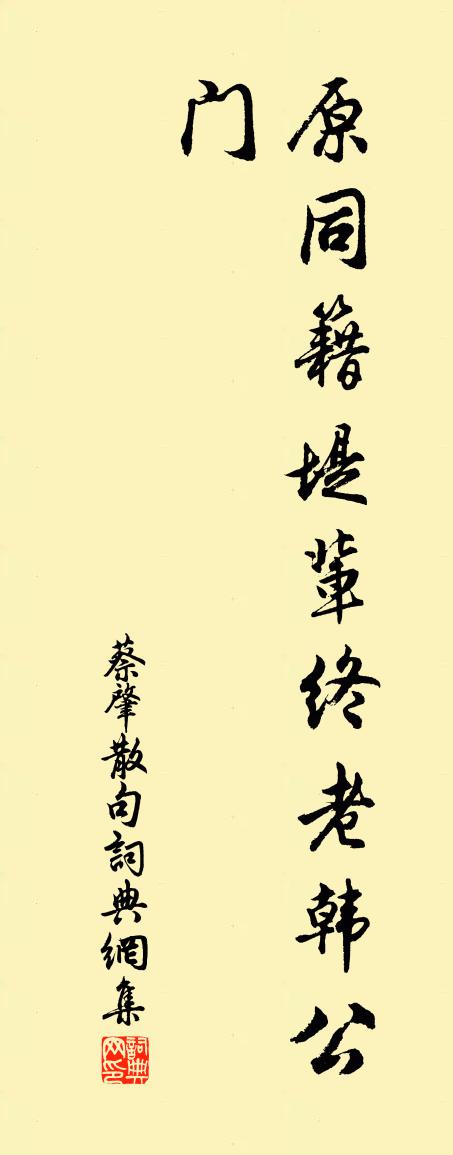 原同籍堤輩终老韩公
门
蔡肇散句詞典網集
詞典网印